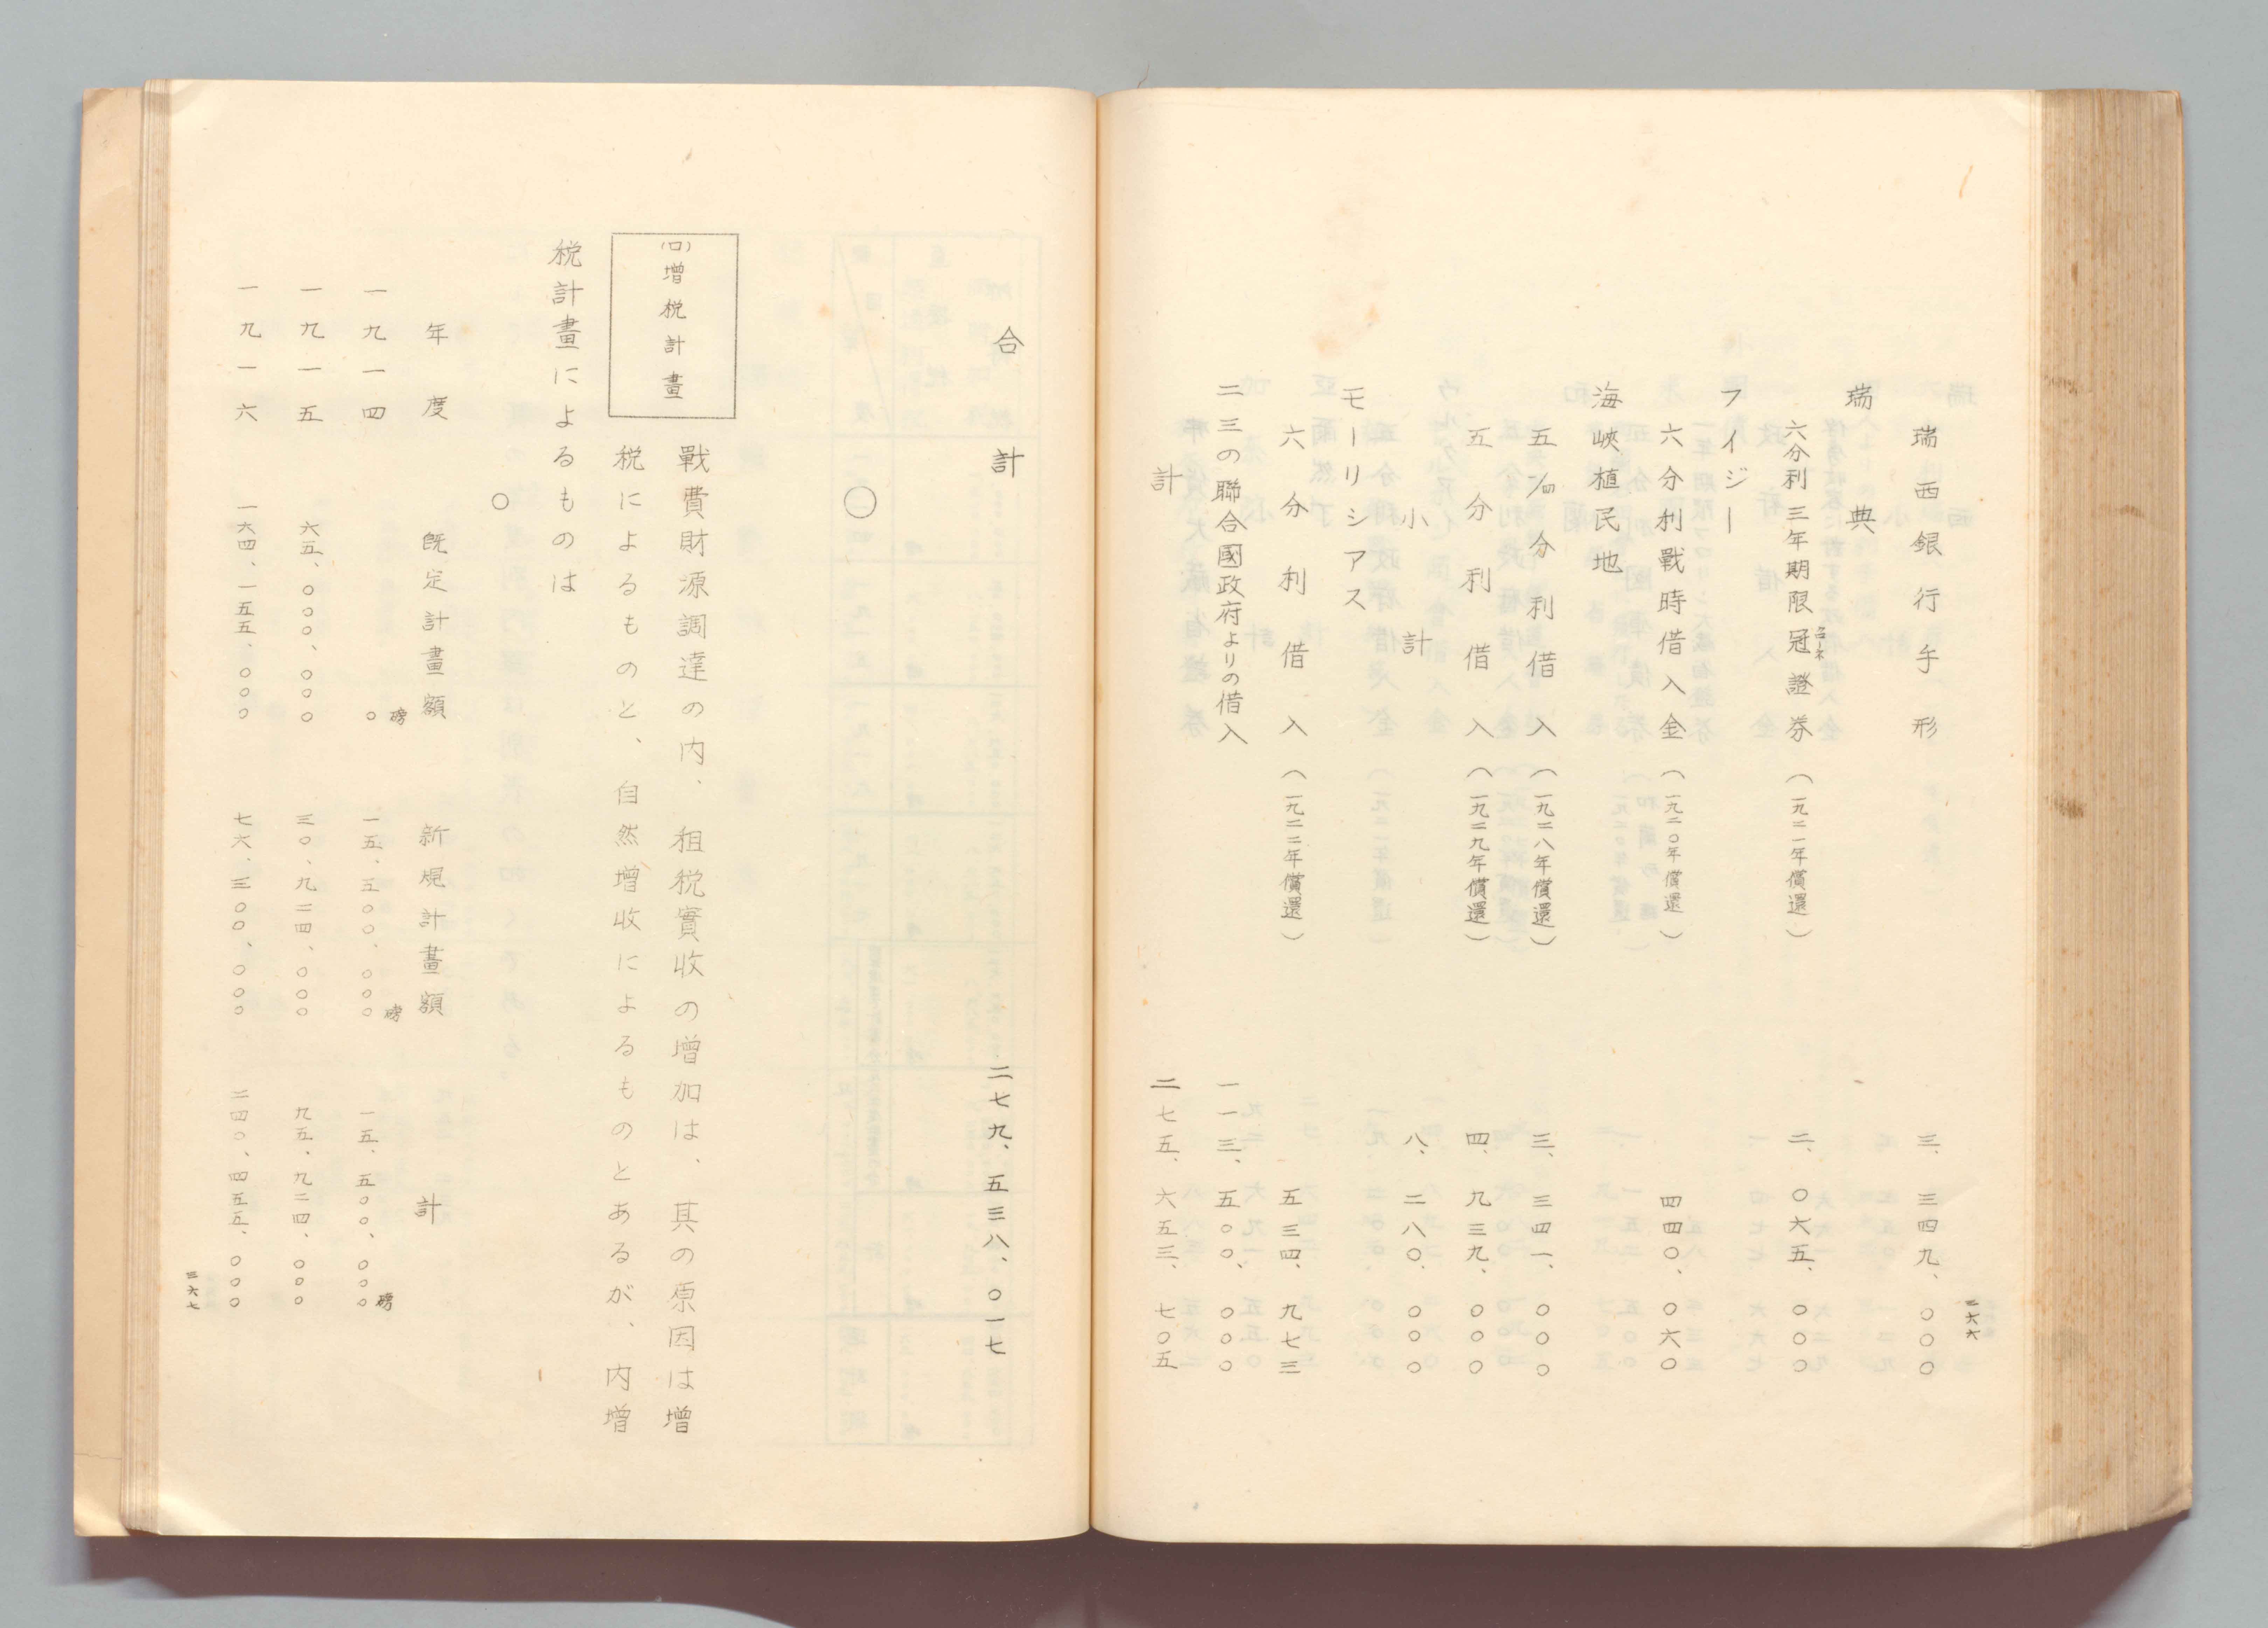 三六六
瑞西銀行手形 三、三四九、〇〇〇
瑞典
六分利三年期限冠證券（一九二一年償還） 二、〇六五、〇〇〇
クローネ
フイジー
六分利戰時借入金（一九二〇年償還） 四四〇、〇六〇
海峽植民地
五1/4分利借入（一九二八年償還） 三、三四一、〇〇〇
五分利借入（一九二九年償還） 四、九三九、〇〇〇
小計 八、二八〇、〇〇〇
モーリシアス
六分利借入（一九二二年償還） 五三四、九七三
二三の聯合國政府よりの借入 一一三、五〇〇、〇〇〇
計 二七五、六五三、七〇五
合計 二七九、五三八、〇一七
〇
(ロ)増税計畫
戰費財源調達の内、租税實收の増加は、其の原因は増
税によるものと、自然増收によるものとあるが、内増
税計畫によるものは
〇
年度 既定計畫額 新規計畫額 計
一九一四 〇磅 一五、五〇〇、〇〇〇磅 一五、五〇〇、〇〇〇磅
一九一五 六五、〇〇〇、〇〇〇 三〇、九二四、〇〇〇 九五、九二四、〇〇〇
一九一六 一六四、一五五、〇〇〇 七六、三〇〇、〇〇〇 二四〇、四五五、〇〇〇
三六七